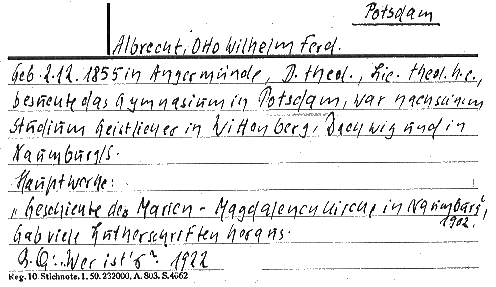 Potsdam
Albrecht, Otto Wilhelm Ferd.
Geb. 2.12.1855 in Angermünde, D. theol., Lic. theol. h.c.,
besuchte das Gymnasium in Potsdam, war nach seinem
Studium Geistlicher in Wittenberg, Dachwig und in
Naumburg/S.
Hauptwerke:
"Geschichte der Marien-Magdalenenkirche in Naumburg",
1902.
Gab viele Lutherschriften heraus.
Wer ist's". 1922
Reg. 10. Stichnote. 1. 59. 232000, A. 803. S. 4662